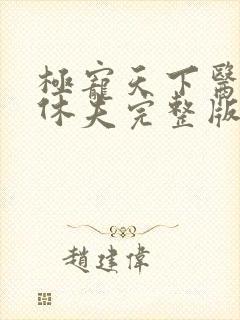 極寵天下醫
休夫完整版
趙建偉